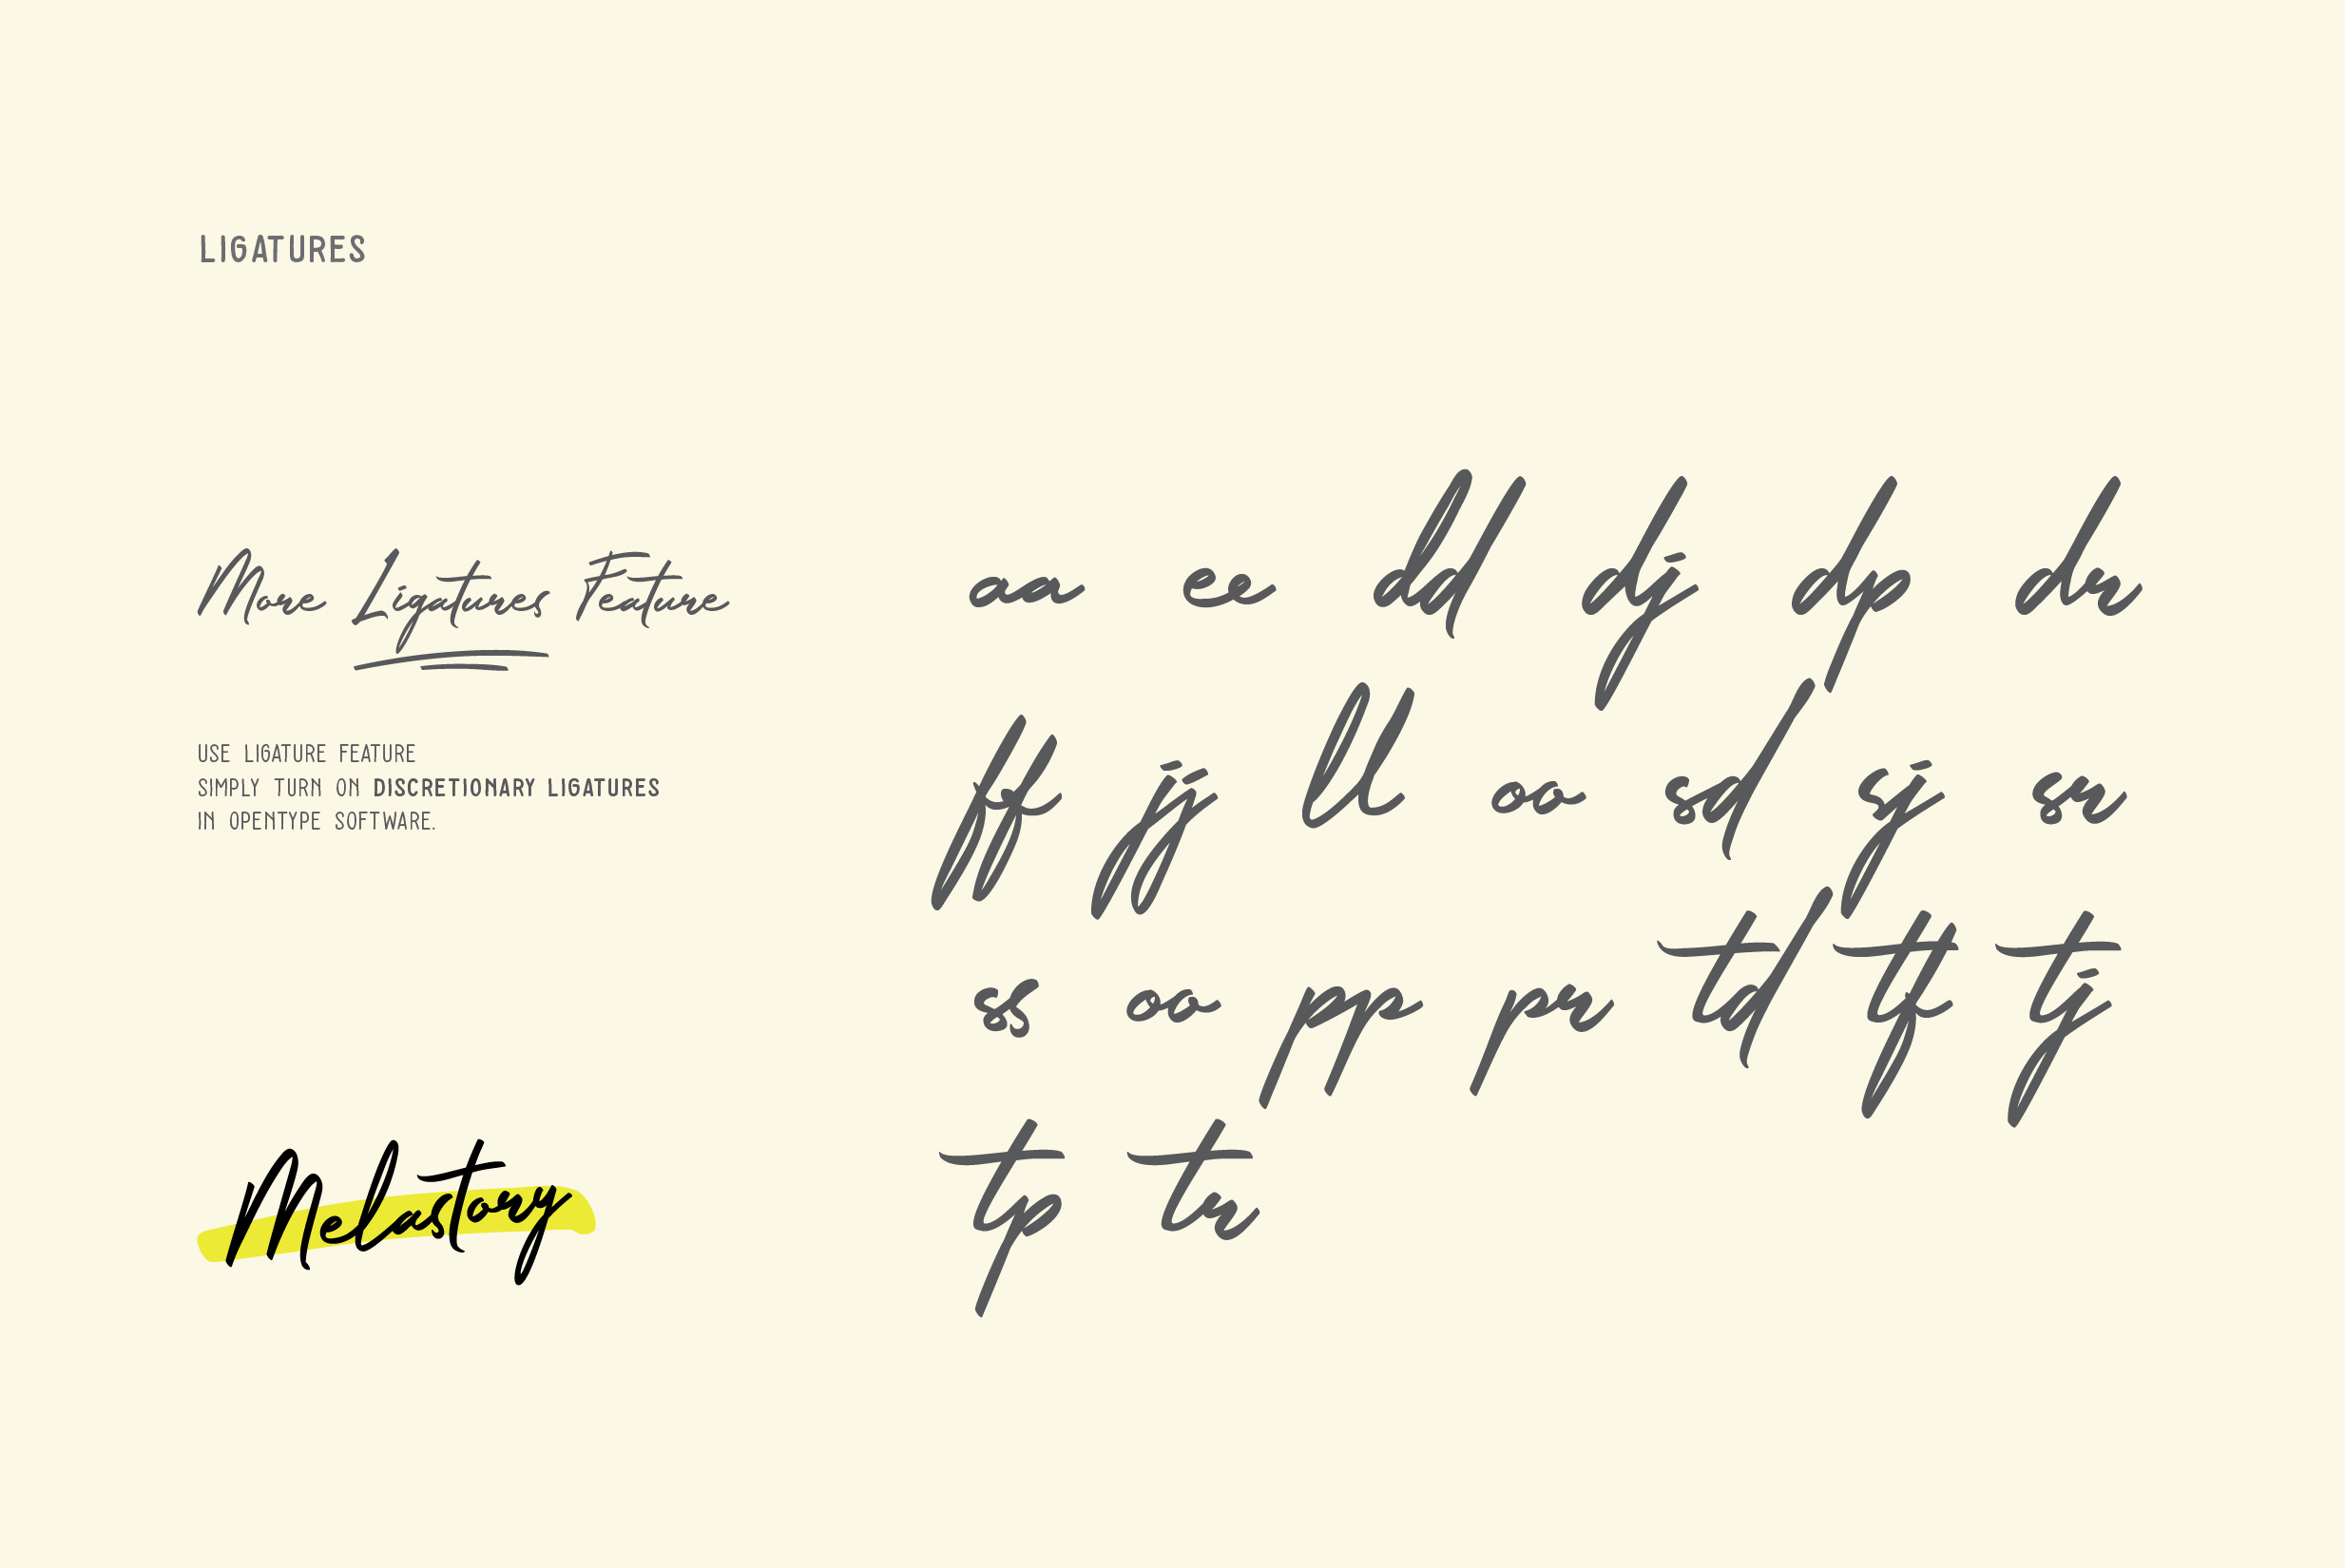 LIGATURES
More Ligatures Feature
USE LIGATURE FEATURE
SIMPLY TURN ON DISCRETIONARY LIGATURES
IN OPENTYPE SOFTWARE.
Melastory
aa ee dd dj dp dr
ff jj ll oo sd sj sr
ss oo pp pr td tf tj
tp tr